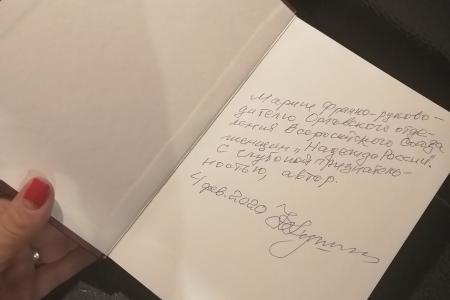 Марине Франко-руково-
дителю Орловского отде-
ления Всероссийского Союза
женщин „Надежда России".
С глубокой признатель-
ностью, автор.
4 фев. 2020